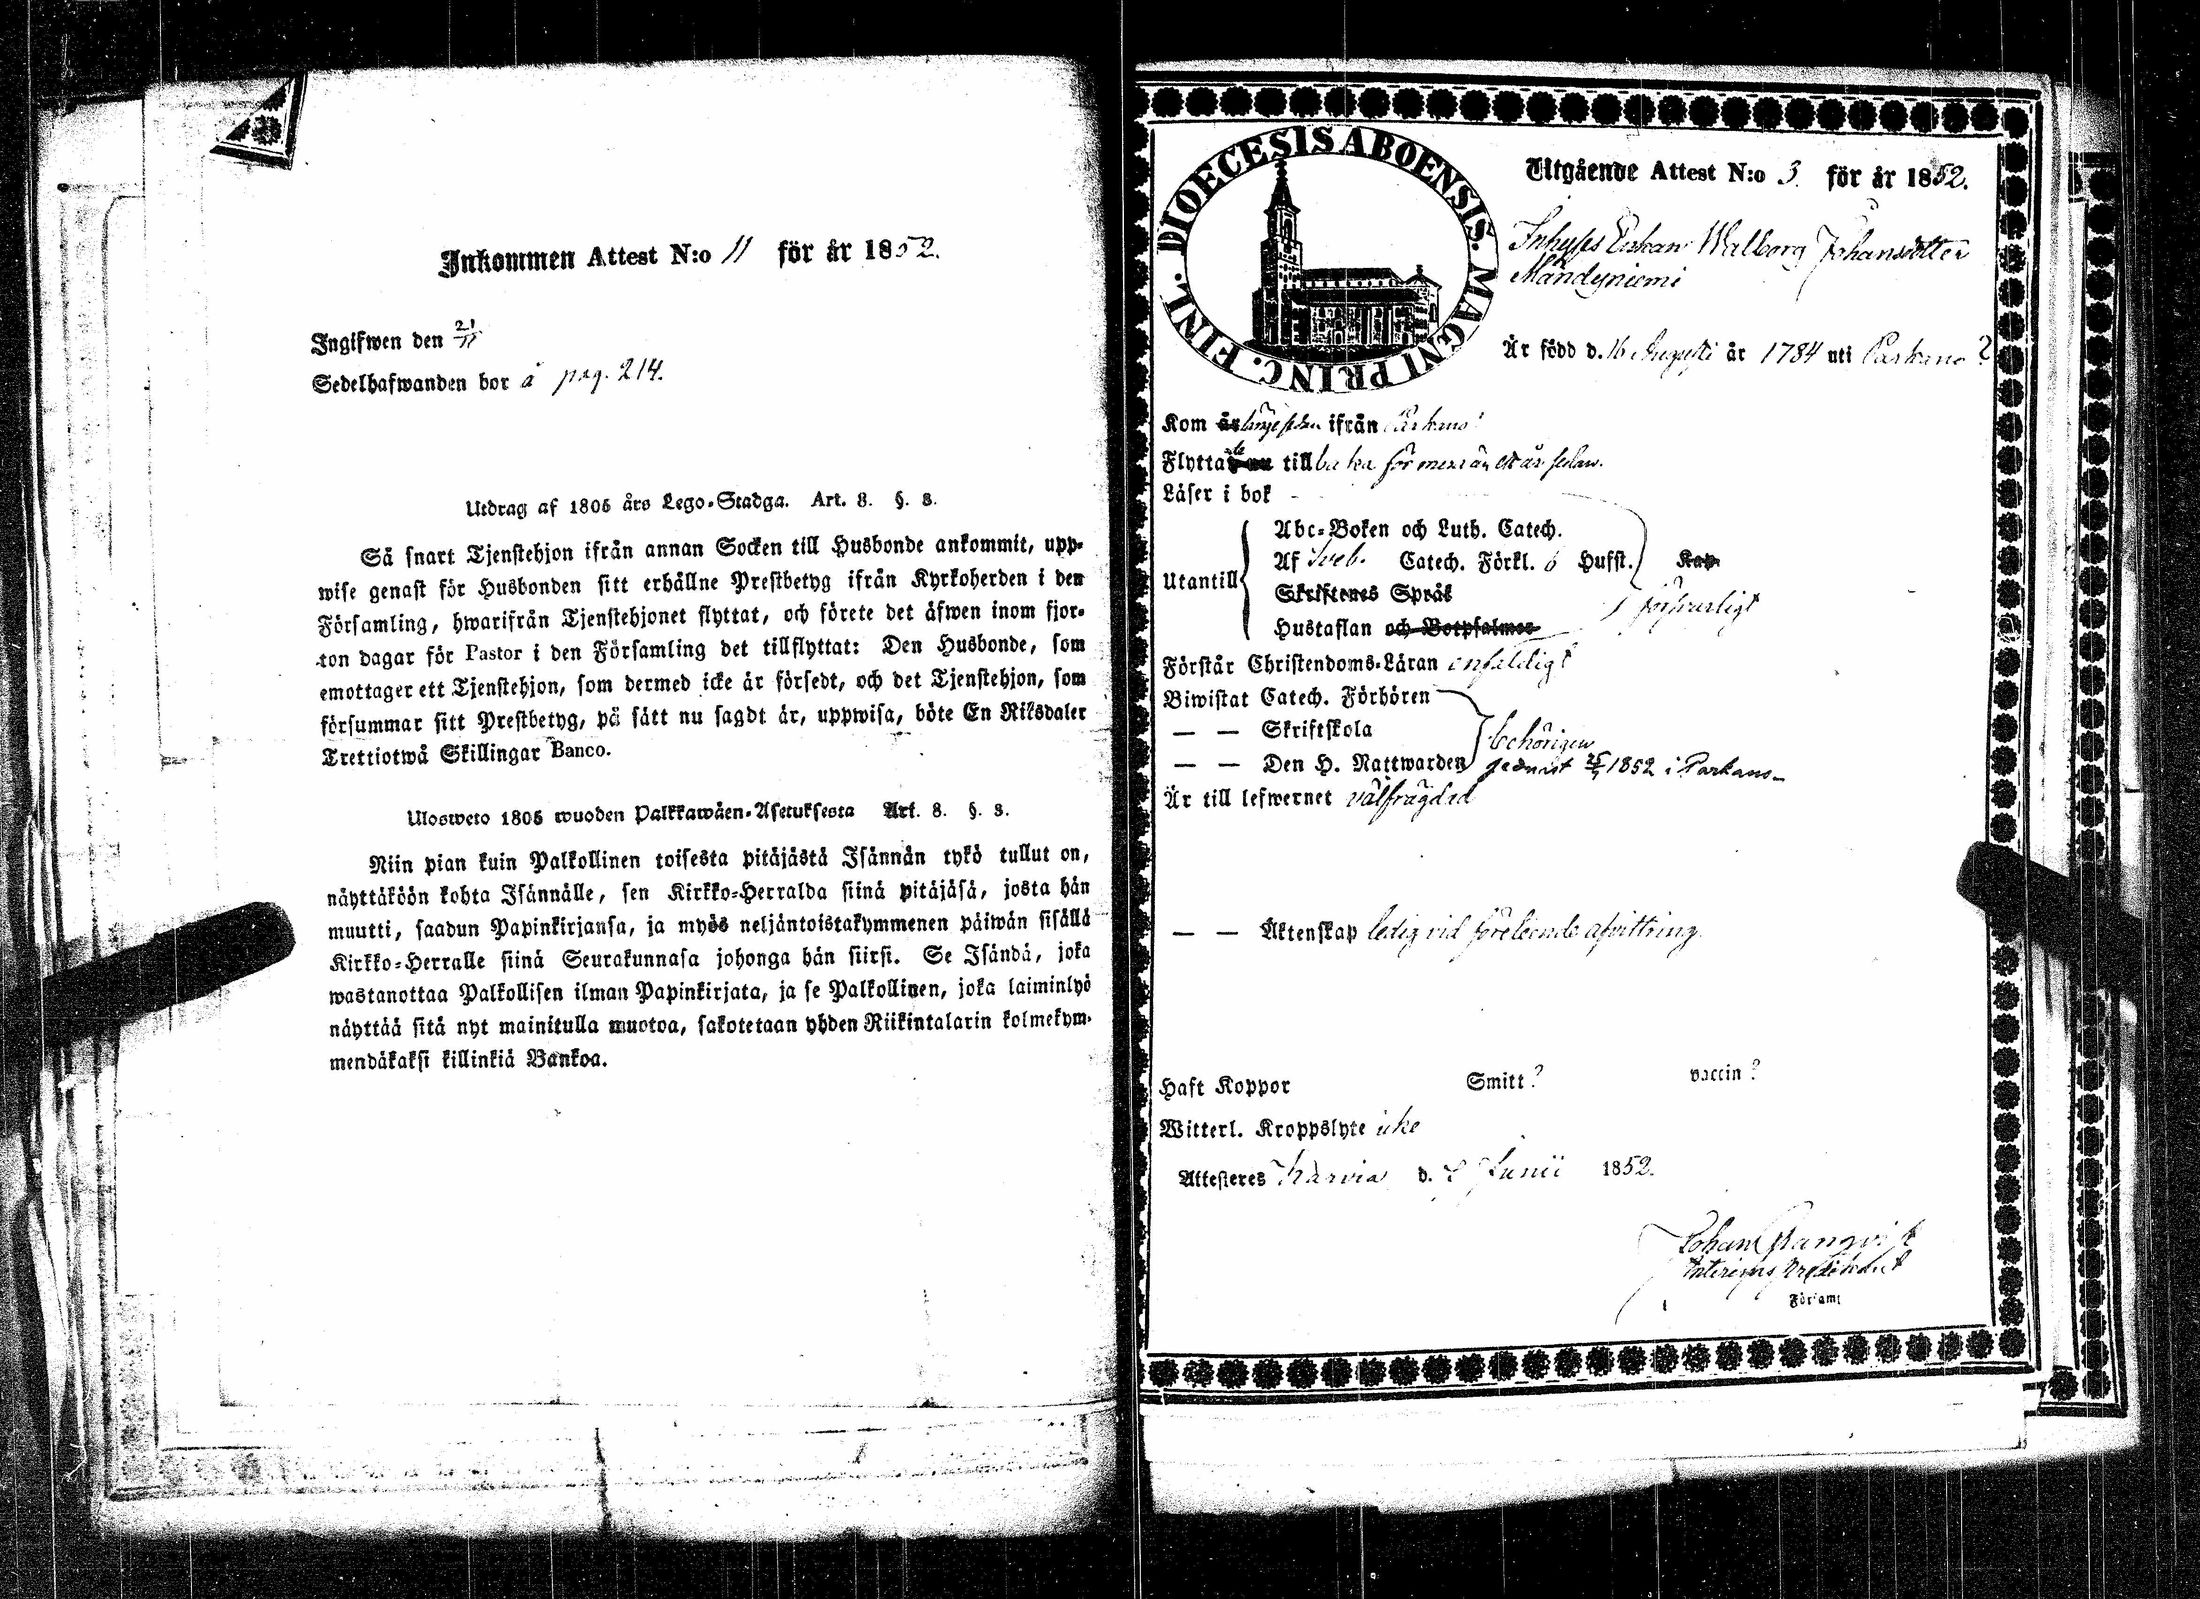 Inkommen Attest N:o 11 för år 1852.
Ingifwen den 21/11
Sedelhafwanden bor å pag. 214.
Utdrag af 1805 års Lego-Stadga. Art. 8. §. 8.
Så snart Tjenstehjon ifrån annan Socken till Husbonde ankommit, upp-
wise genast för Husbonden sitt erhållne Prestbetyg ifrån Kyrkoherden i den
Församling, hwarifrån Tjenstehjonet flyttat, och förete det äfwen inom fjor-
ton dagar för Pastor i den Församling det tillflyttat: Den Husbonde, som
emottager ett Tjenstehjon, som dermed icke är försedt, och det Tjenstehjon, som
försummar sitt Prestbetyg, på sätt nu sagdt är, uppwisa, böte En Riksdaler
Trettiotwå Skillingar Banco.
Ulosweto 1805 wuoden Palkkawäen-Asetuksesta Art. 8. §. 8.
Niin pian kuin Palkollinen toisesta pitäjästä Isännän tykö tullut on,
näyttäköön kohta Isännälle, sen Kirkko-Herralda siinä pitäjäsä, josta hän
muutti, saadun Papinkirjansa, ja myös neljäntoistakymmenen päiwän sisällä
Kirkko-Herralle siinä Seurakunnasa johonga hän siirsi. Se Isändä, joka
wastanottaa Palkollisen ilman Papinkirjata, ja se Palkollinen, joka laiminlyö
näyttää sitä nyt mainitulla muotoa, sakotetaan yhden Riikintalarin kolmekym-
mendäkaksi killinkiä Bankoa.
DIOECESIS ABOENSIS. MAGNI PRINC. FINL.
Utgående Attest N:o 3. för år 1852.
Inhyses Enkan Walborg Johansdotter
Mändyniemi
Är född d. 16 Augusti år 1784 uti Parkano ?
Kom år länge sedan ifrån Parkano
Flyttade till baka för mer än ett år sedan.
Läser i bok
Abc-Boken och Luth. Catech.
Utantill Af Sveb. Catech. Förkl. 6 Husst. Kap.
Skriftenes Språk
försvarligt
Hustaflan och Botpsalmer
Förstår Christendoms-Läran enfaldigt
Biwistat Catech. Förhören
— — Skriftskola behörigen
— — Den H. Nattwarden 1852 i Parkano
Är till lefwernet välfrägdad
— — Äktenskap ledig vid företeende afvittring.
Haft Koppor Smitt ? vaccin ?
Witterl. Kroppslyte icke
Attesteres Karvia d. Junii 1852.
Johan
Interims Predikant
Församl